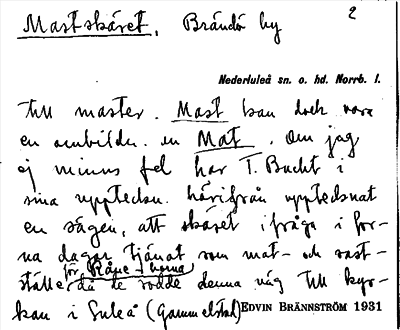 Mastskäret, Brändö by 2
Nederluleå sn. o. hd. Norrb. l.
till master. Mast kan dock vara
en ombildn. en Mat. Om jag
ej minns fel har T. Bucht i
sina uppteckn. härifrån upptecknat
en sägen, att skäret ifråga i for-
na dagar tjänat som mat- och rast-
ställe för Råne-borna då de rodde denna väg till kyr-
kan i Luleå (Gammelstad)
EDVIN BRÄNNSTRÖM 1931